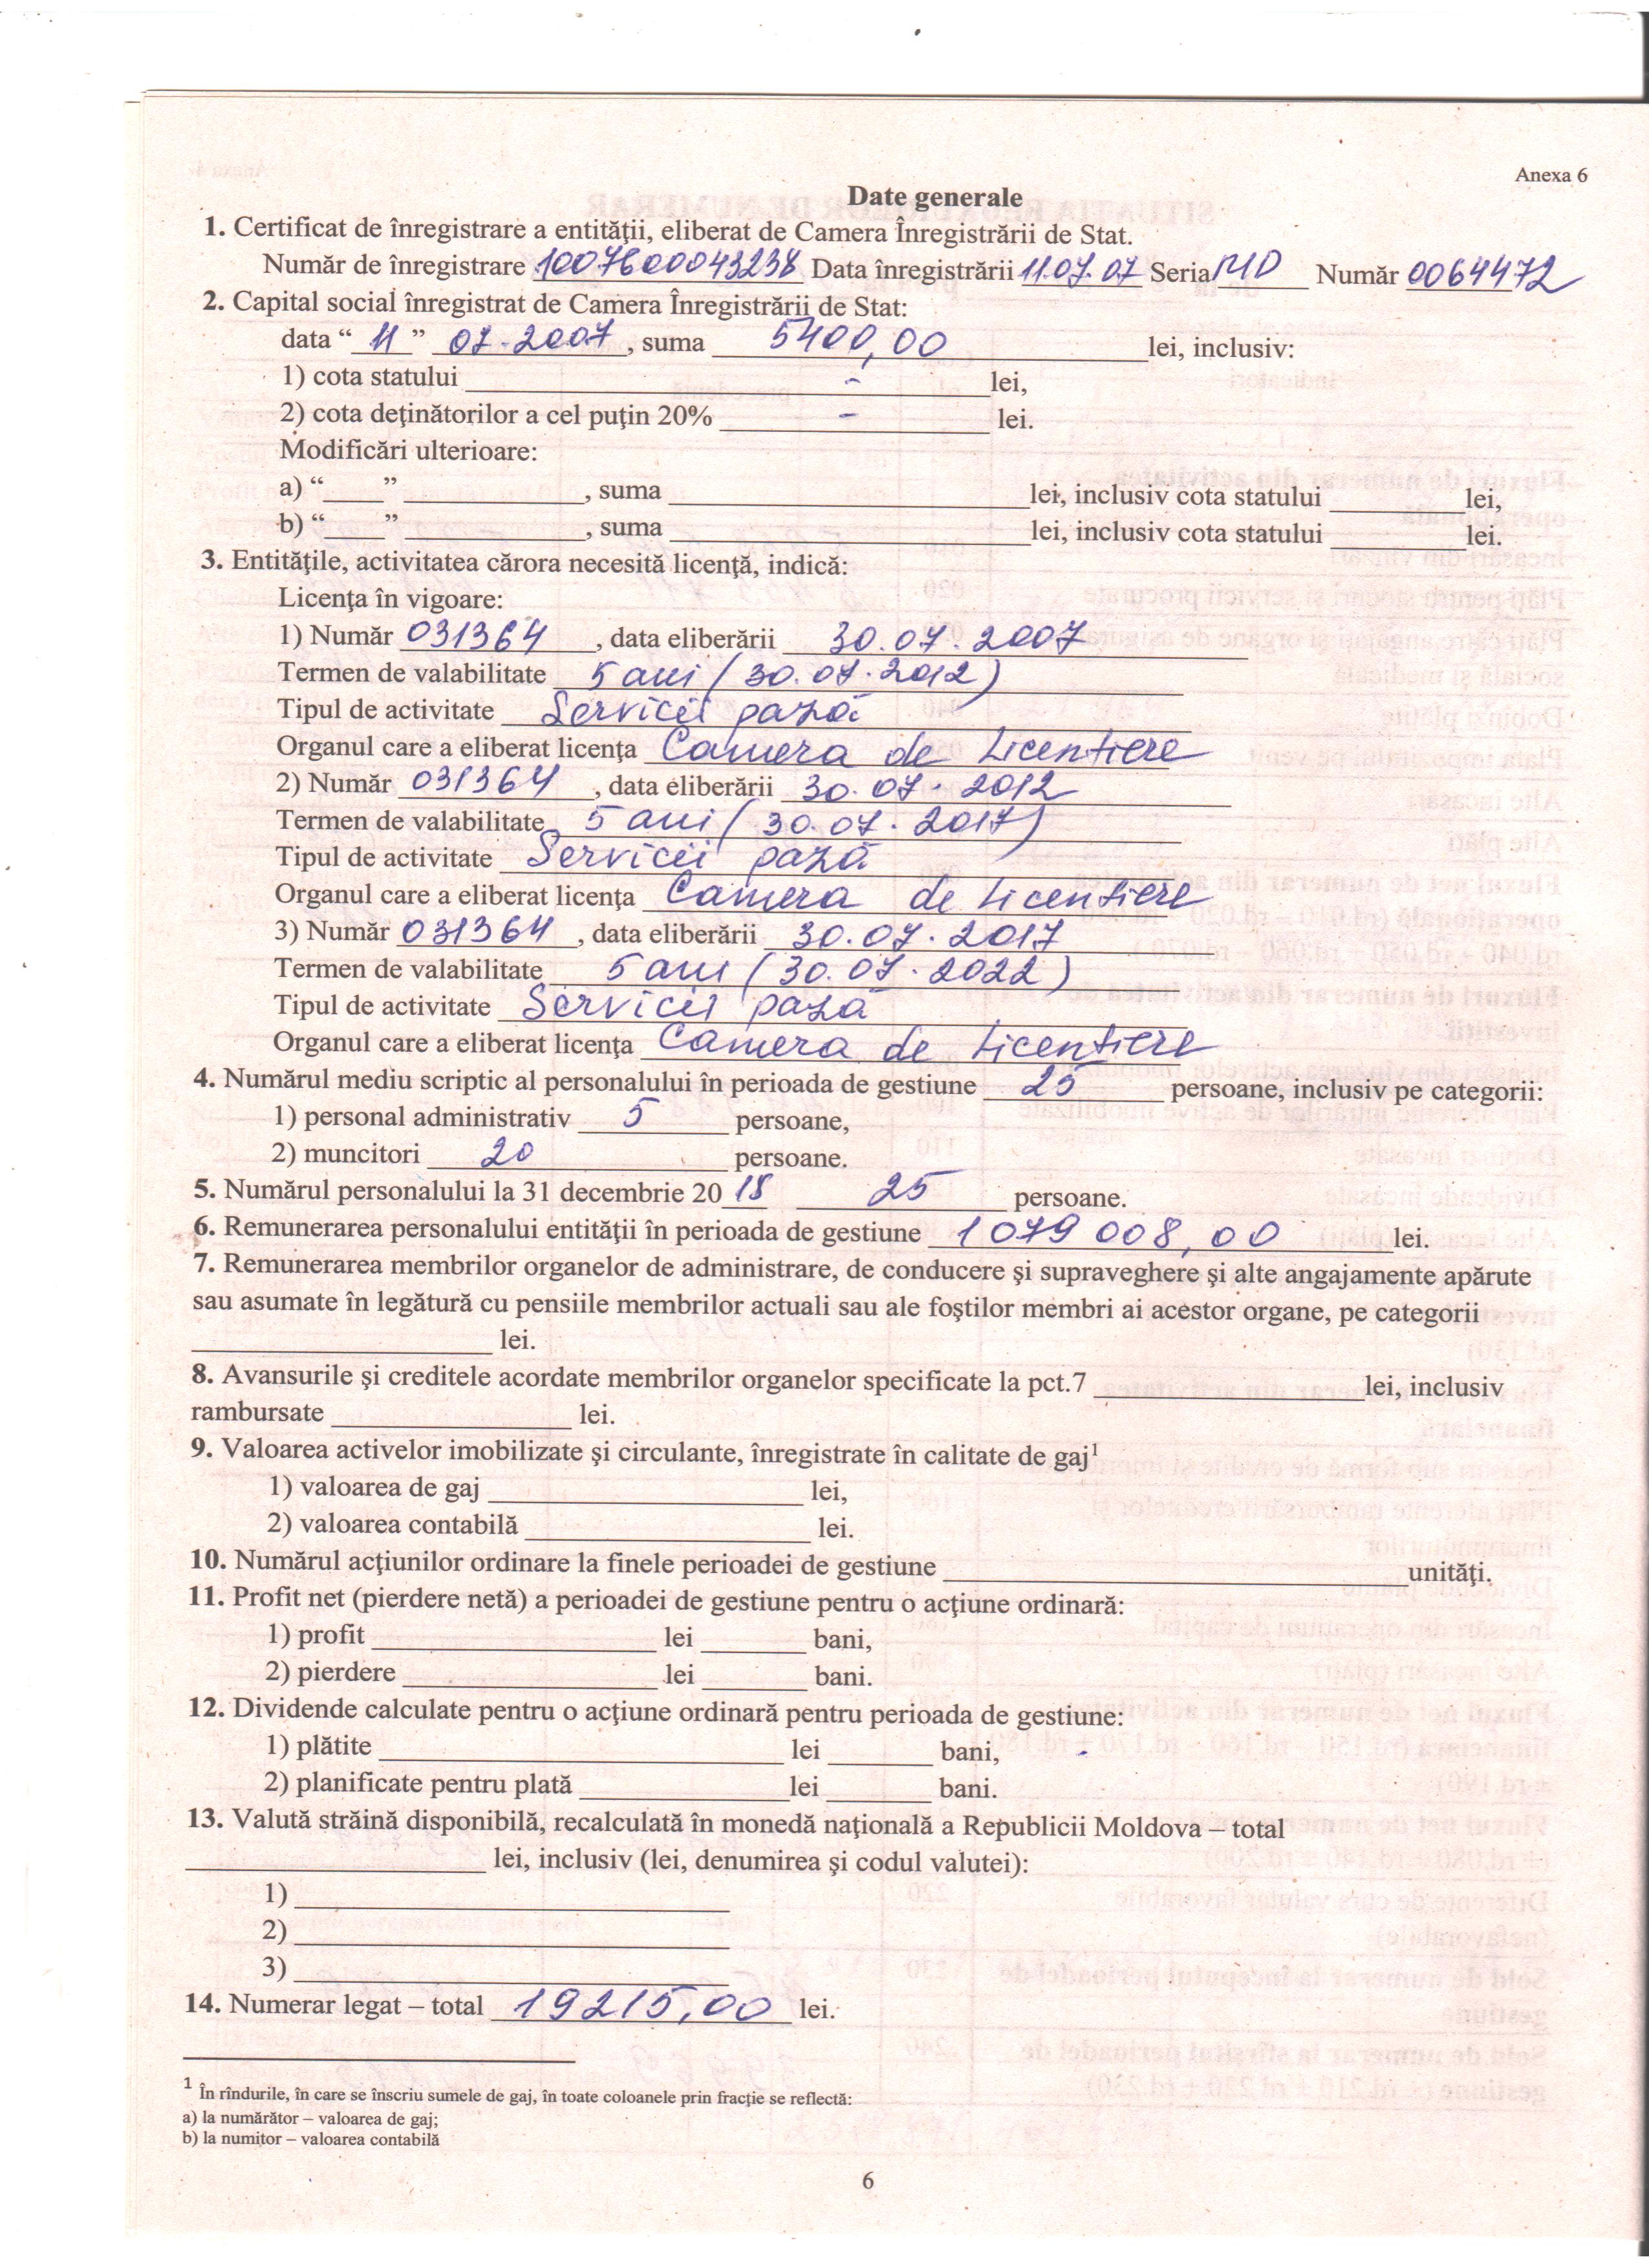 Anexa 6
Date generale
1. Certificat de înregistrare a entităţii, eliberat de Camera Înregistrării de Stat.
Număr de înregistrare 1007600043238 Data înregistrării 11.07.07 Seria MD Număr 0064472
2. Capital social înregistrat de Camera Înregistrării de Stat:
data “ 11 ” 07.2007, suma 5400,00 lei, inclusiv:
1) cota statului - lei,
2) cota deţinătorilor a cel puţin 20% - lei.
Modificări ulterioare:
a) “____” ____________, suma ____________ lei, inclusiv cota statului _________ lei,
b) “____” ____________, suma ____________ lei, inclusiv cota statului _________ lei.
3. Entităţile, activitatea cărora necesită licenţă, indică:
Licenţa în vigoare:
1) Număr 031364, data eliberării 30.07.2007
Termen de valabilitate 5 ani (30.07.2012)
Tipul de activitate Servicii pază
Organul care a eliberat licenţa Camera de Licentiere
2) Număr 031364, data eliberării 30.07.2012
Termen de valabilitate 5 ani (30.07.2017)
Tipul de activitate Servicii pază
Organul care a eliberat licenţa Camera de Licentiere
3) Număr 031364, data eliberării 30.07.2017
Termen de valabilitate 5 ani (30.07.2022)
Tipul de activitate Servicii pază
Organul care a eliberat licenţa Camera de Licentiere
4. Numărul mediu scriptic al personalului în perioada de gestiune 25 persoane, inclusiv pe categorii:
1) personal administrativ 5 persoane,
2) muncitori 20 persoane.
5. Numărul personalului la 31 decembrie 2018 25 persoane.
6. Remunerarea personalului entităţii în perioada de gestiune 1079 008,00 lei.
7. Remunerarea membrilor organelor de administrare, de conducere şi supraveghere şi alte angajamente apărute
sau asumate în legătură cu pensiile membrilor actuali sau ale foştilor membri ai acestor organe, pe categorii
____________ lei.
8. Avansurile şi creditele acordate membrilor organelor specificate la pct.7 ____________ lei, inclusiv
rambursate ____________ lei.
9. Valoarea activelor imobilizate şi circulante, înregistrate în calitate de gaj¹
1) valoarea de gaj ____________ lei,
2) valoarea contabilă ____________ lei.
10. Numărul acţiunilor ordinare la finele perioadei de gestiune ____________ unităţi.
11. Profit net (pierdere netă) a perioadei de gestiune pentru o acţiune ordinară:
1) profit ____________ lei _______ bani,
2) pierdere ____________ lei _______ bani.
12. Dividende calculate pentru o acţiune ordinară pentru perioada de gestiune:
1) plătite ____________ lei _______ bani,
2) planificate pentru plată ____________ lei _______ bani.
13. Valută străină disponibilă, recalculată în monedă naţională a Republicii Moldova – total
____________ lei, inclusiv (lei, denumirea şi codul valutei):
1) ____________
2) ____________
3) ____________
14. Numerar legat – total 19215,00 lei.
¹ În rîndurile, în care se înscriu sumele de gaj, în toate coloanele prin fracţie se reflectă:
a) la numărător – valoarea de gaj;
b) la numitor – valoarea contabilă
6